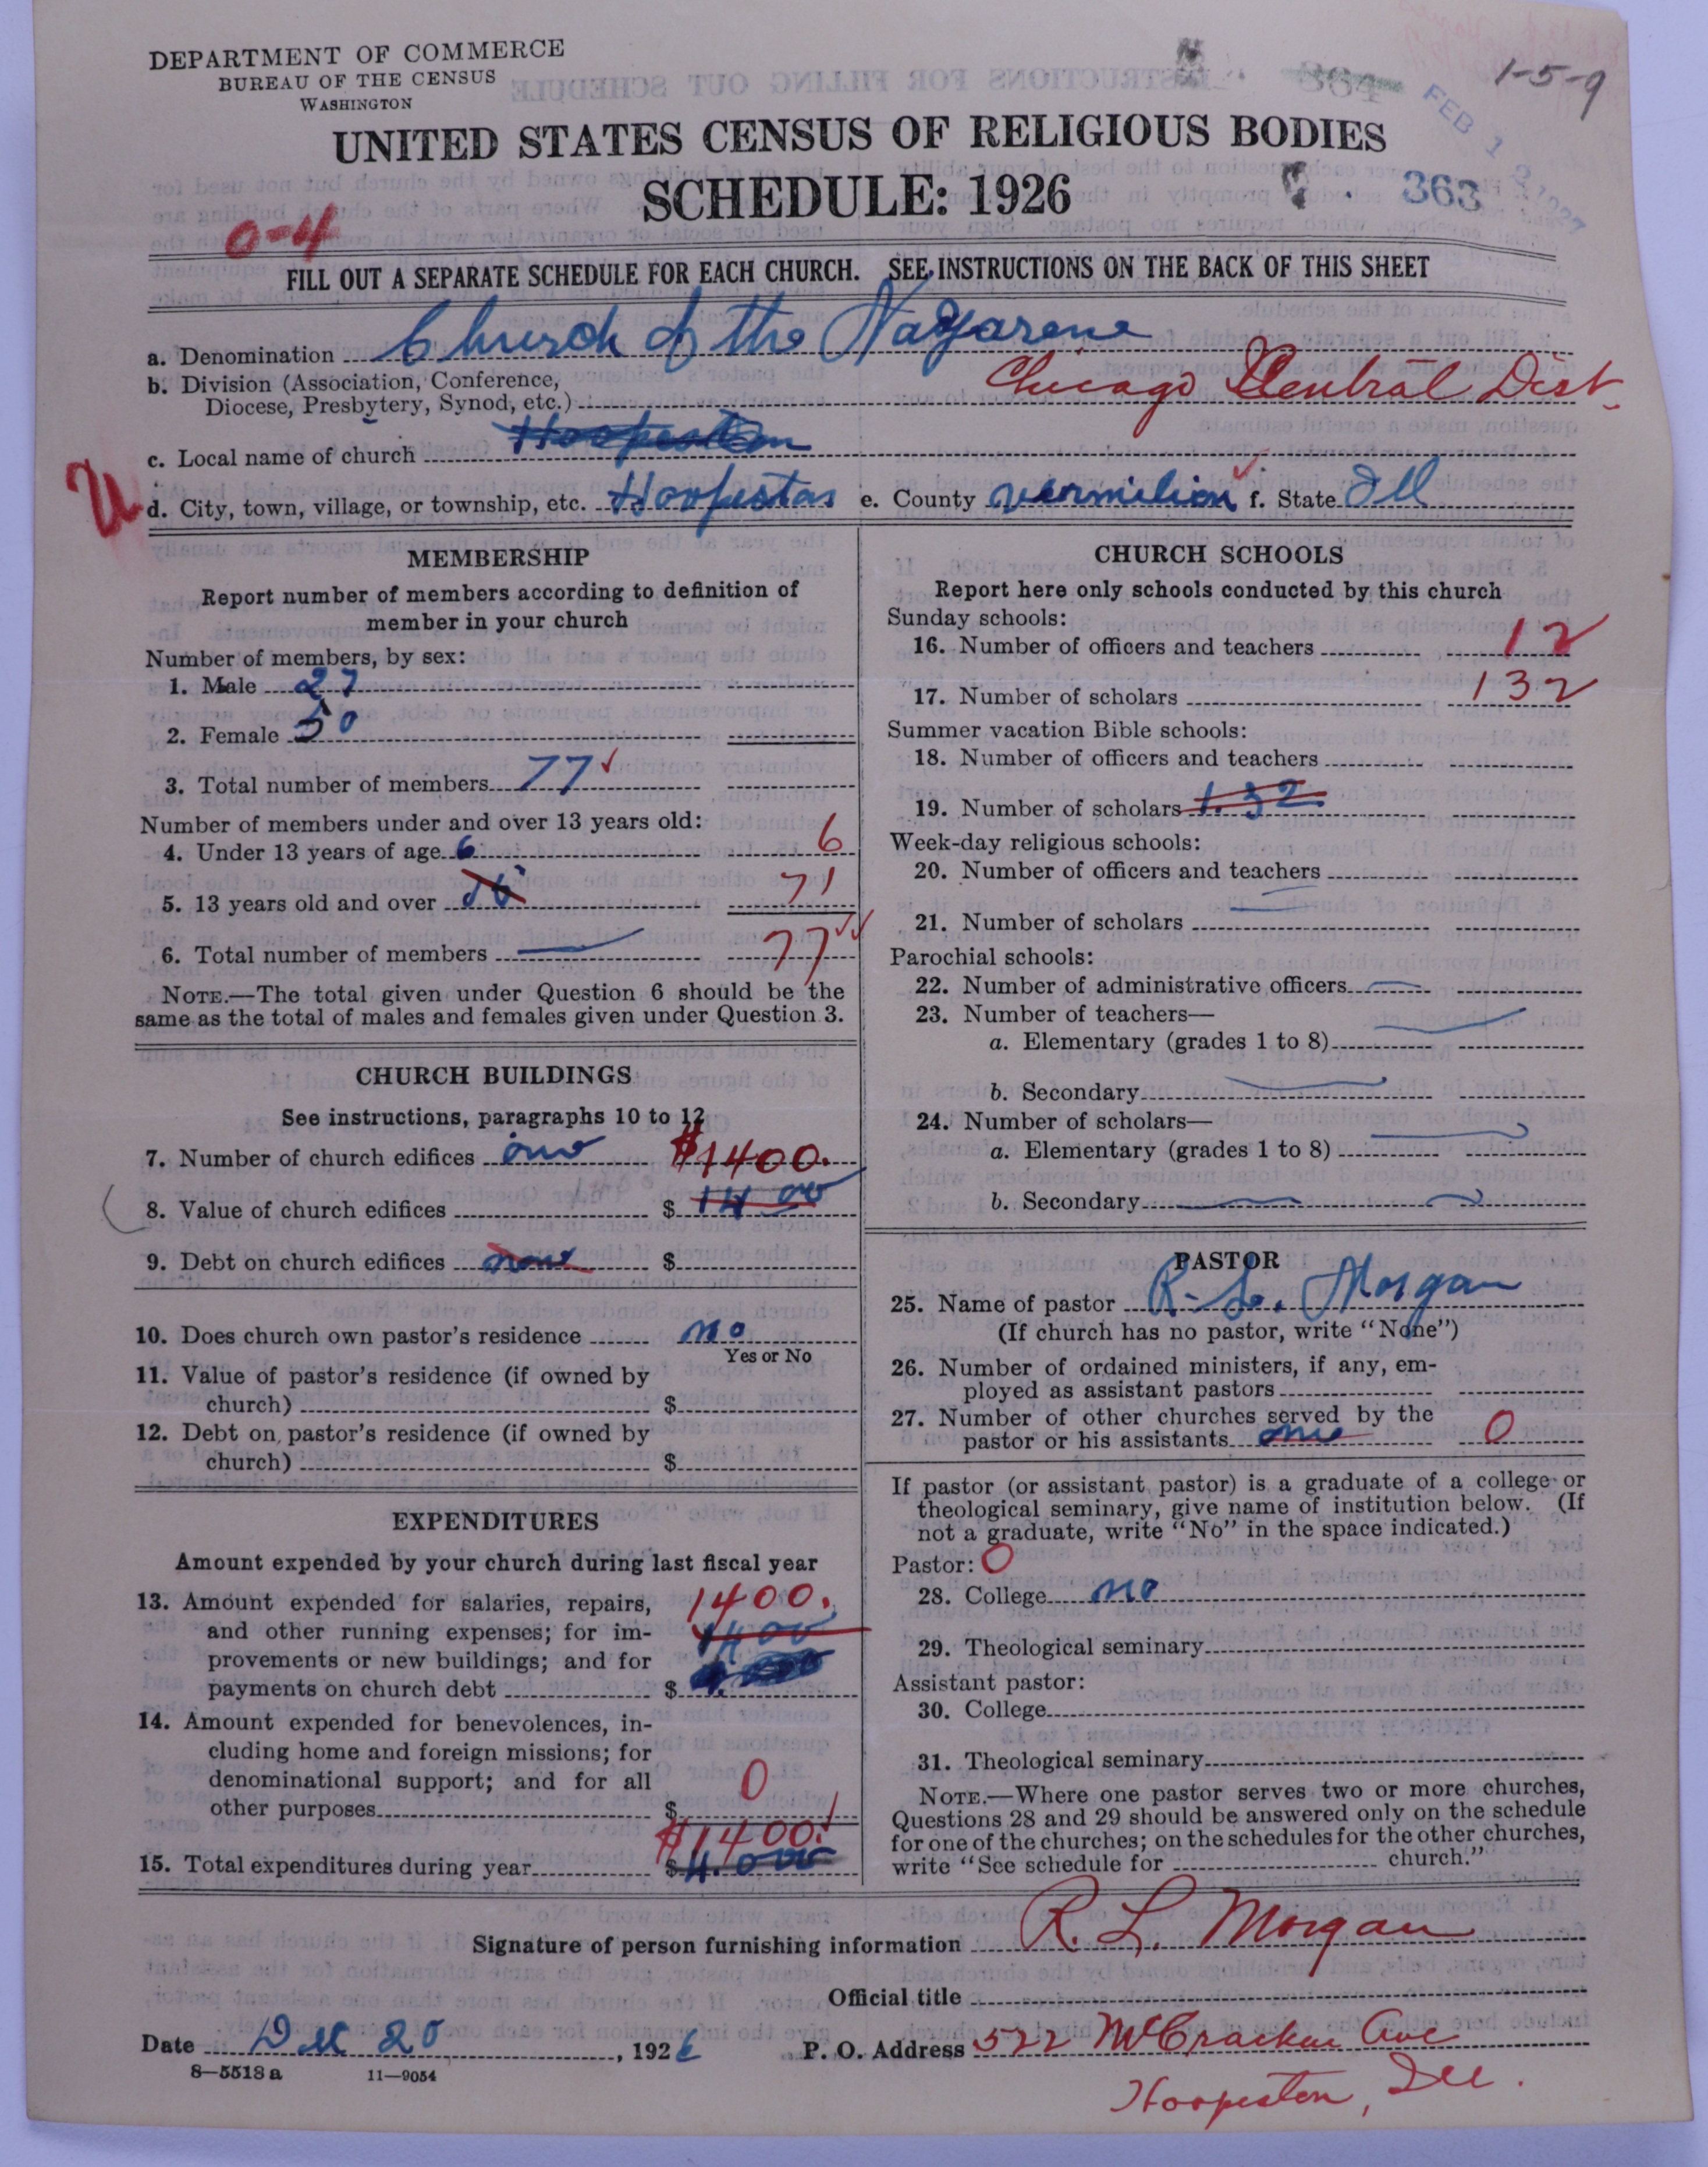 DEPARTMENT OF COMMERCE
BUREAU OF THE CENSUS
WASHINGTON
364
1-5-9
UNITED STATES CENSUS OF RELIGIOUS BODIES
FEB 1 1927
SCHEDULE: 1926
363
0-4
FILL OUT A SEPARATE SCHEDULE FOR EACH CHURCH. SEE INSTRUCTIONS ON THE BACK OF THIS SHEET
a. Denomination Church of the Nazarene
b. Division (Association, Conference,
Diocese, Presbytery, Synod, etc.) Chicago Central Dist.
c. Local name of church Hoopeston
U
d. City, town, village, or township, etc. Hoopeston e. County vermilion f. State Ill
MEMBERSHIP
Report number of members according to definition of
member in your church
Number of members, by sex:
1. Male 27
2. Female 50
3. Total number of members 77
Number of members under and over 13 years old:
4. Under 13 years of age 6 6
5. 13 years old and over 71
6. Total number of members 77
NOTE.—The total given under Question 6 should be the
same as the total of males and females given under Question 3.
CHURCH BUILDINGS
See instructions, paragraphs 10 to 12
7. Number of church edifices one $1400.
8. Value of church edifices $ 1400
9. Debt on church edifices none $
10. Does church own pastor's residence no
Yes or No
11. Value of pastor's residence (if owned by
church) $
12. Debt on pastor's residence (if owned by
church) $
EXPENDITURES
Amount expended by your church during last fiscal year
13. Amount expended for salaries, repairs, 1400.
and other running expenses; for im- 1400
provements or new buildings; and for
payments on church debt $
14. Amount expended for benevolences, in-
cluding home and foreign missions; for
denominational support; and for all 0
other purposes $
$1400.
15. Total expenditures during year $4.000
CHURCH SCHOOLS
Report here only schools conducted by this church
Sunday schools:
16. Number of officers and teachers 12
17. Number of scholars 132
Summer vacation Bible schools:
18. Number of officers and teachers
19. Number of scholars 1.32
Week-day religious schools:
20. Number of officers and teachers
21. Number of scholars
Parochial schools:
22. Number of administrative officers
23. Number of teachers—
a. Elementary (grades 1 to 8)
b. Secondary
24. Number of scholars—
a. Elementary (grades 1 to 8)
b. Secondary
PASTOR
25. Name of pastor R. L. Morgan
(If church has no pastor, write "None")
26. Number of ordained ministers, if any, em-
ployed as assistant pastors
27. Number of other churches served by the
pastor or his assistants one 0
If pastor (or assistant pastor) is a graduate of a college or
theological seminary, give name of institution below. (If
not a graduate, write "No" in the space indicated.)
Pastor: 0
28. College no
29. Theological seminary
Assistant pastor:
30. College
31. Theological seminary
NOTE.—Where one pastor serves two or more churches,
Questions 28 and 29 should be answered only on the schedule
for one of the churches; on the schedules for the other churches,
write "See schedule for church."
Signature of person furnishing information R. L. Morgan
Official title
Date Dec 20, 1926 P. O. Address 522 McCracken Ave
8—5518a 11—9054
Hoopeston, Ill.